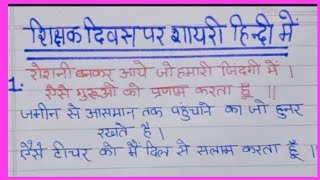 शिक्षक दिवस पर शायरी हिन्दी में
1. रोशनी बनकर आये जो हमारी जिंदगी में ।
ऐसे गुरूओं को प्रणाम करता हूँ ॥
जमीन से आसमान तक पहुंचाने का जो हुनर
रखते है ।
ऐसे टीचर को मैं दिल से सलाम करता हूँ ।